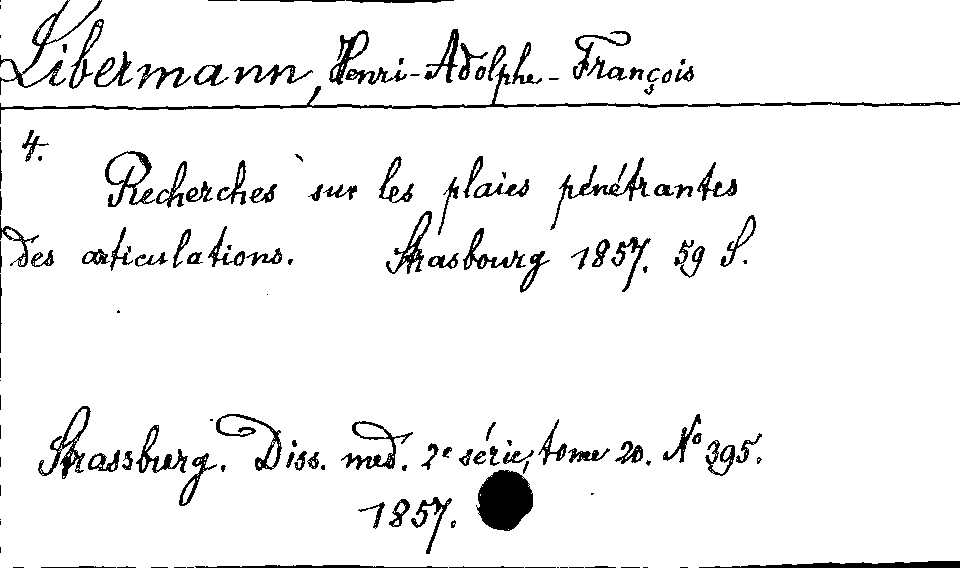 Libermann, Henri-Adolphe-François
4.
Recherches sur les plaies pénétrantes
des articulations. Strasbourg 1857. 59 S.
Strassburg. Diss. med. 2e série, tome 20. No 395.
1857.